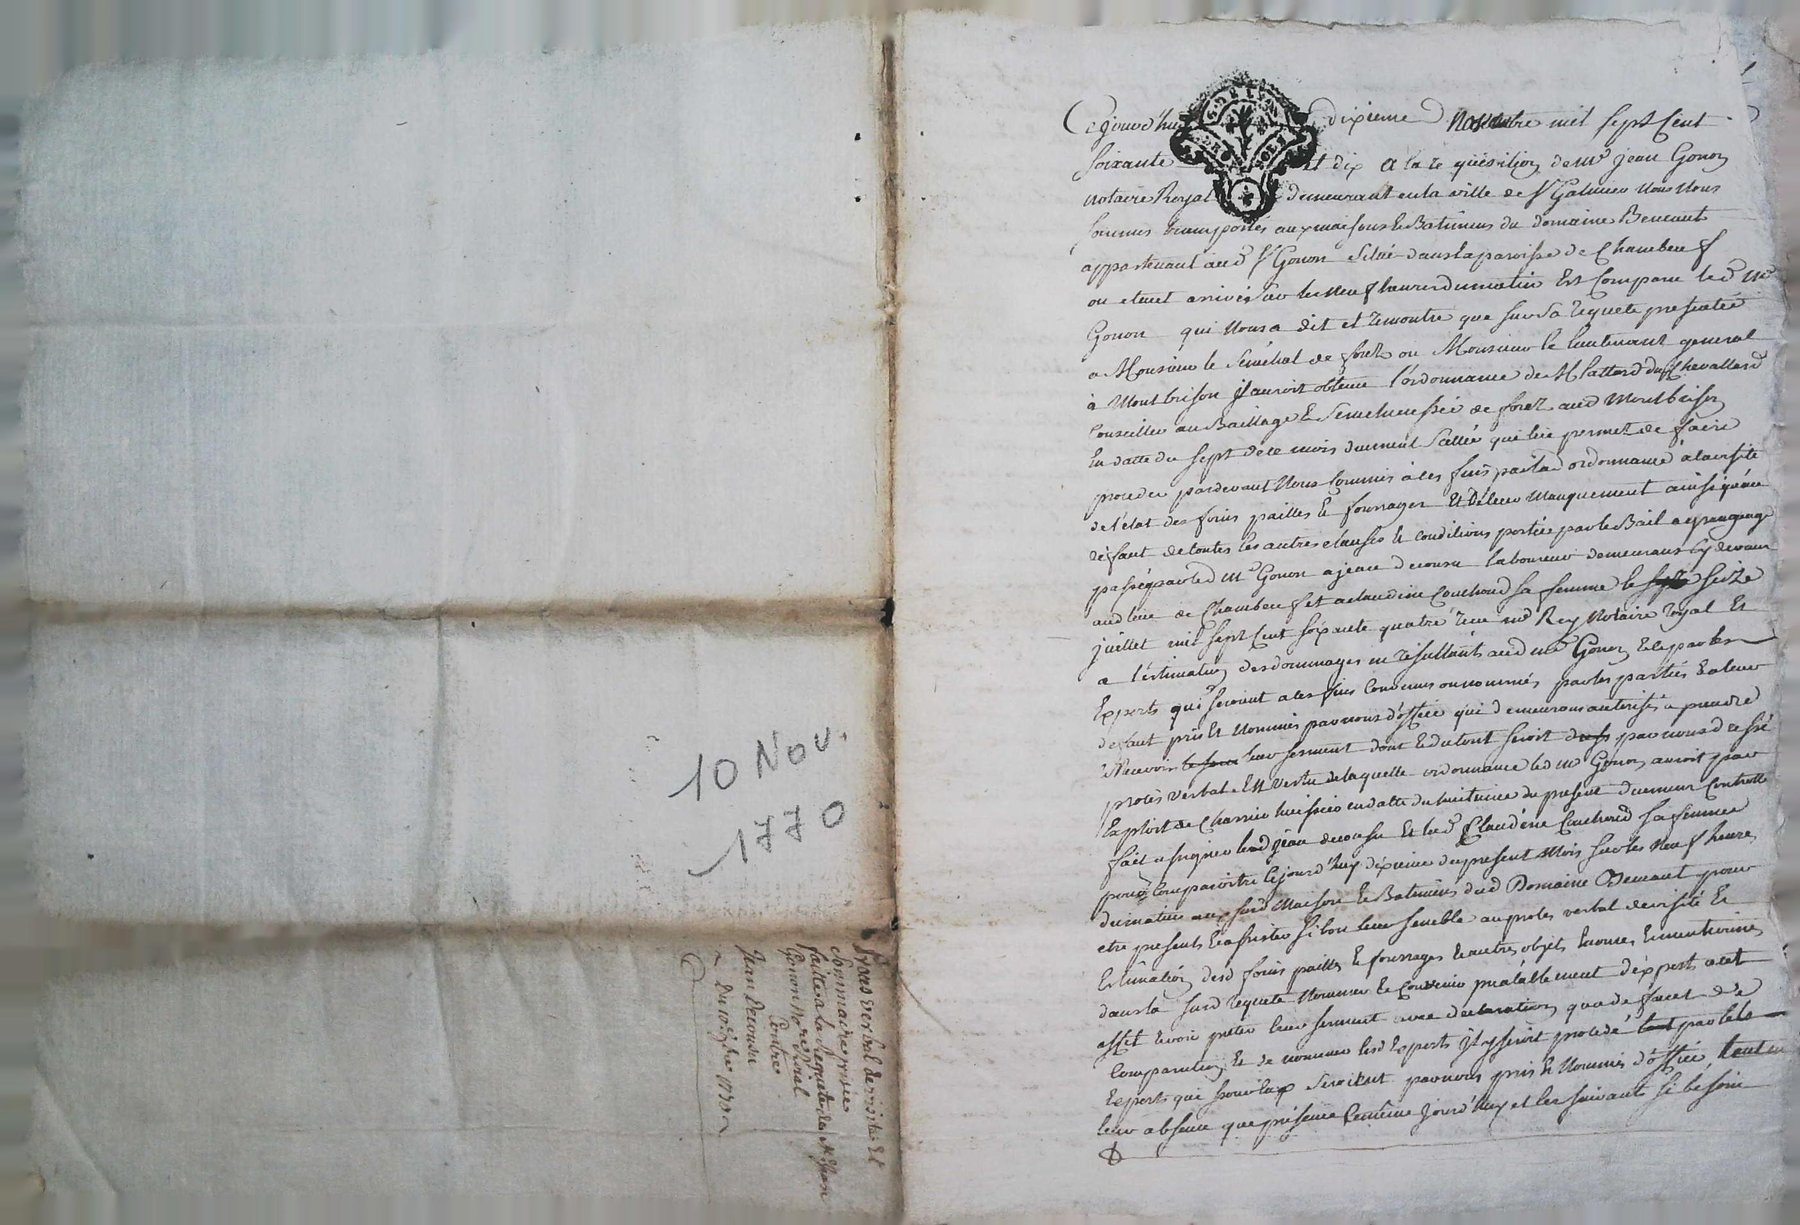 10 Nov.
1770
Procès Verbal de visitte Et
Sommaire prisée
faitte a la Requette de Mr Jean
Gonon Nore Royal
Contre
Jean Decousu
Du 10e 9bre 1770
Cejourd'huy dixieme Novembre mil sept Cent
soixante et dix a la réquisition de Mr jean Gonon
notaire Royal demeurant en la ville de St Galmier Nous Nous
sommes transportés aux maisons et Batimens du domaine
appartenant aud Sr Gonon situé dans la paroisse de Chambeuf
ou etant arrivés sur les neuf heures du matin Est Comparu led Mr
Gonon qui Nous a dit et remontré que sur sa requete presentée
a Monsieur le Senéchal de forez ou Monsieur le lieutenant general
à Montbrison il auroit obtenu l'ordonnance de M du Chevallard
Conseiller au Baillage & Senechaussée de forez aud Montbrison
En datte du sept de ce mois duement Scellée qui luy permet de faire
proceder pardevant Nous Commis à ces fins par lad ordonnance à la visite
de l'état des foins pailles & fourrages Et de leur manquement ainsi qu'au
défaut de toutes les autres clauses & conditions portées par le Bail a grangeage
passé par led Mr Gonon a jean decousu laboureur demeurant cy devant
aud lieu de Chambeuf et a claudine Couchoud sa femme le seize
juillet mil sept Cent soixante quatre reçu Me Rey Notaire royal Et
a l'estimation des dommages en résultants aud Mr Gonon & ce par les
Experts qui seroient a ces fins Convenus ou nommés par les parties & a leur
defaut pris Et Nommés par nous d'office qui demeurons autorisés a prendre
& Recevoir leur serment dont & du tout seroit par nous dressé
procès verbal. En vertu de laquelle ordonnance led Mr Gonon auroit par
Exploit de huissier en datte du huitieme du present duement Controllé
fait assigner led jean decousu Et lad Claudine Couchoud sa femme
pour Comparoitre Cejourd'huy dixieme du present mois sur les Neuf heures
du matin aux susd Maison & Batimens dud Domaine pour
etre presents & assister si bon leur semble au procès verbal de visite Et
Estimation desd foins pailles & fourrages & autres objets Enoncés & mentionnés
dans la susd requete Nommer & Convenir préalablement d'experts a cet
effet & voir preter leur serment avec declaration que de faute de
Comparution Et de nommer lesd Experts il y seroit procédé par les
Experts qui pour eux Seroient par nous pris & Nommés d'office tant en
leur absence que présence Cemême jourd'huy et les suivants si besoin